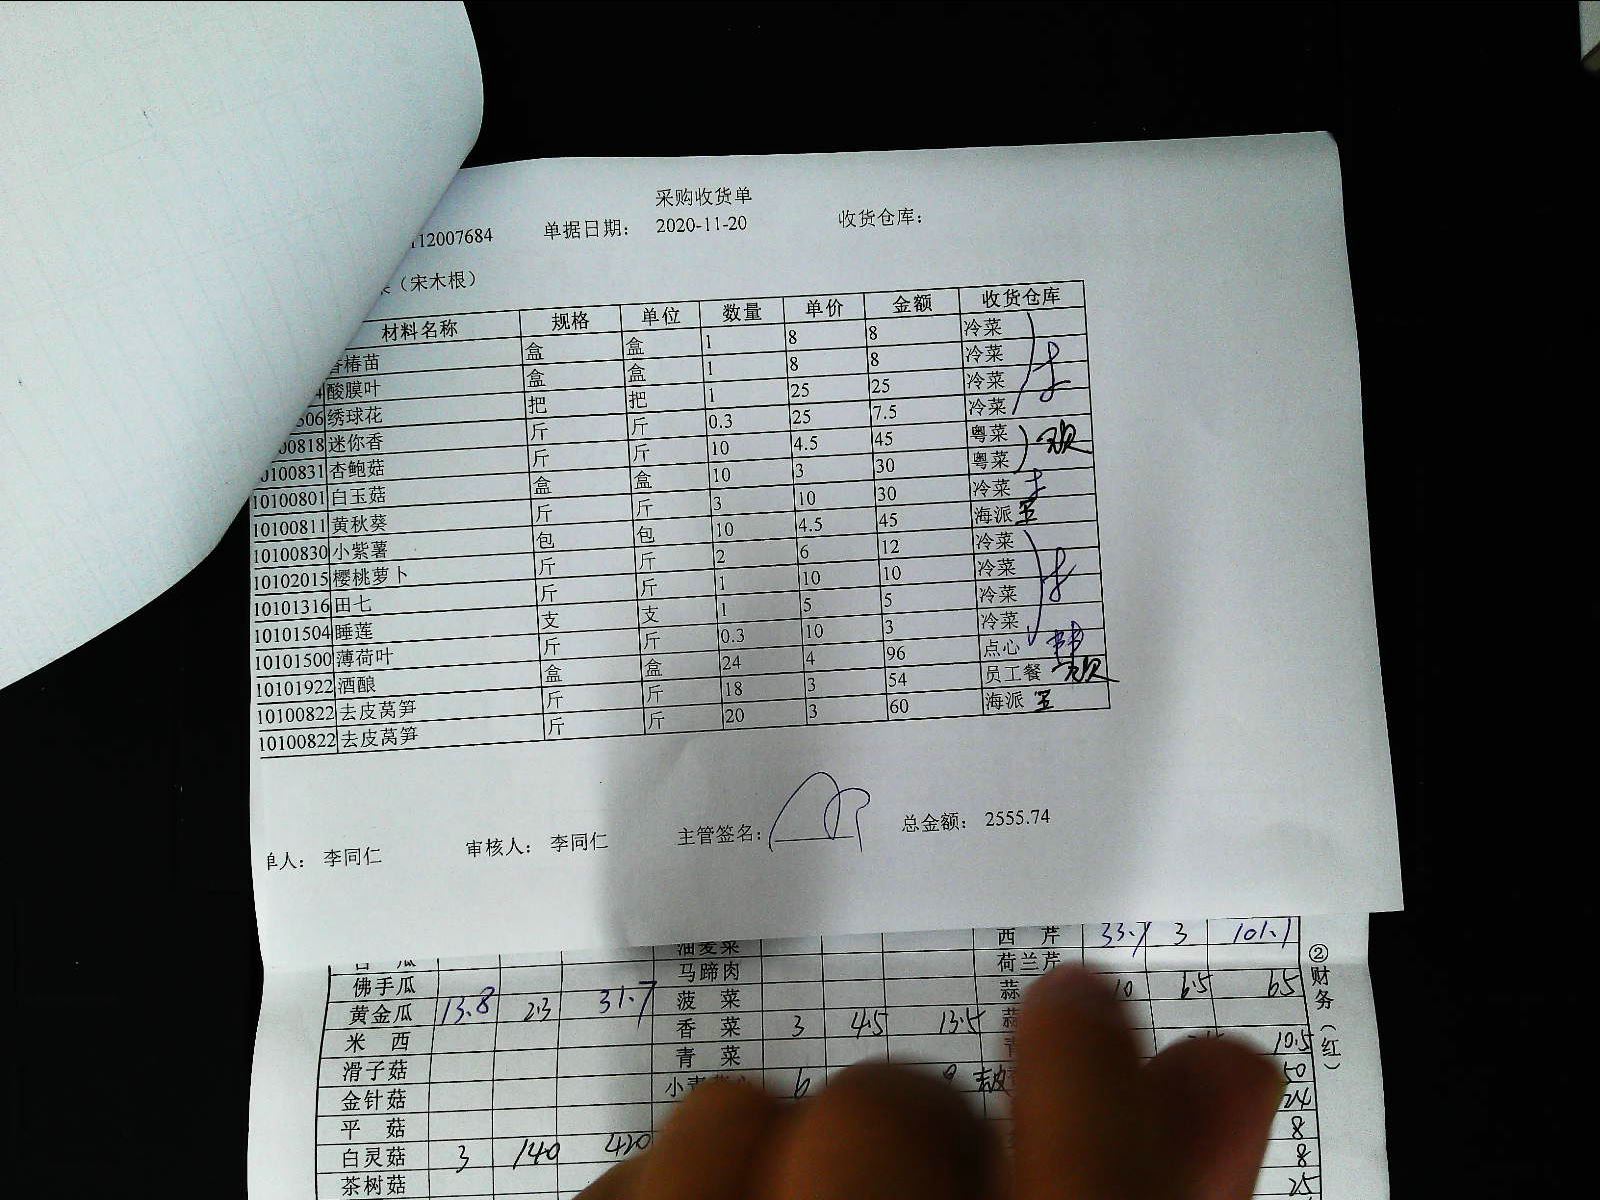 采购收货单
112007684 单据日期： 2020-11-20 收货仓库：
（宋木根）
材料名称 规格 单位 数量 单价 金额 收货仓库
香椿苗 盒 盒 1 8 8 冷菜
4 酸膜叶 盒 盒 1 8 8 冷菜
506 绣球花 把 把 1 25 25 冷菜
00818 迷你香 斤 斤 0.3 25 7.5 冷菜
10100831 杏鲍菇 斤 斤 10 4.5 45 粤菜
10100801 白玉菇 盒 盒 10 3 30 粤菜
10100811 黄秋葵 斤 斤 3 10 30 冷菜
10100830 小紫薯 包 包 10 4.5 45 海派
10102015 樱桃萝卜 斤 斤 2 6 12 冷菜
10101316 田七 斤 斤 1 10 10 冷菜
10101504 睡莲 支 支 1 5 5 冷菜
10101500 薄荷叶 斤 斤 0.3 10 3 冷菜
10101922 酒酿 盒 盒 24 4 96 点心
10100822 去皮莴笋 斤 斤 18 3 54 员工餐
10100822 去皮莴笋 斤 斤 20 3 60 海派
单人： 李同仁 审核人： 李同仁 主管签名： 总金额： 2555.74
油麦菜 西芹 33.7 3 101.1
佛手瓜 马蹄肉 荷兰芹
黄金瓜 13.8 2.3 31.7 菠菜 蒜 10 6.5 65
米西 香菜 3 4.5 13.5 蒜
滑子菇 青菜 青 10.5
金针菇 小青菜心 6 9 去皮 50
24
平菇 8
白灵菇 3 140 420 8
茶树菇 25
②财务（红）